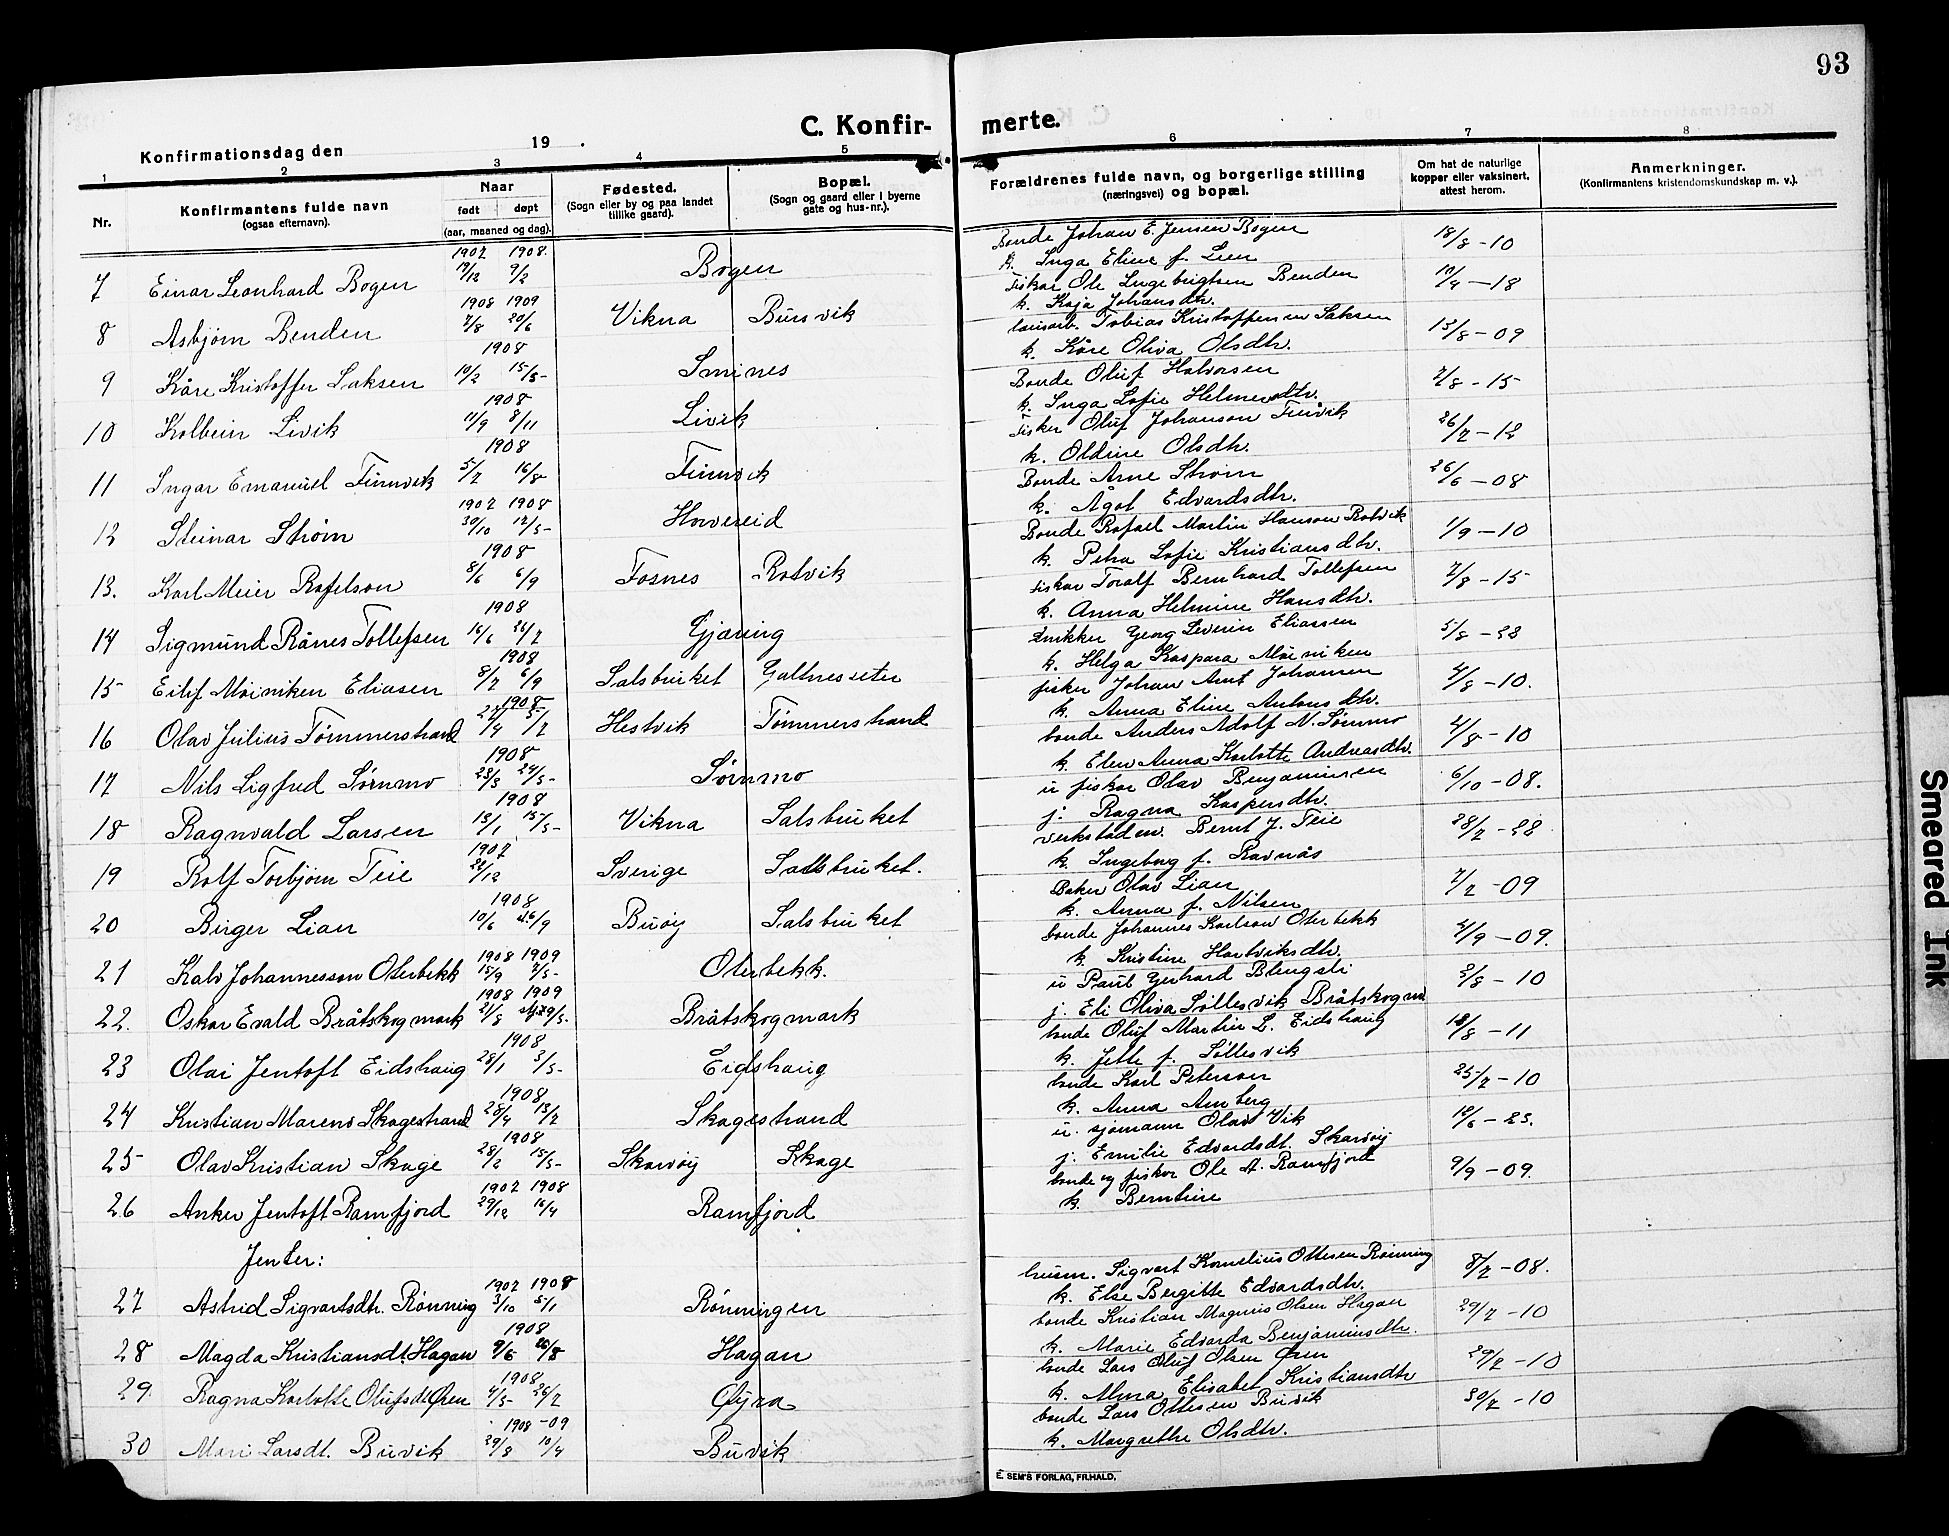 93
C. Konfirmerte.
Konfirmationsdag den 19 .
1 2 3 4 5 6 7 8
Nr.
Konfirmantens fulde navn
(ogsaa efternavn).
Naar
født døpt
(aar, maaned og dag).
Fødested.
(Sogn eller by og paa landet
tillike gaard).
Bopæl.
(Sogn og gaard eller i byerne
gate og hus-nr.).
Forældrenes fulde navn, og borgerlige stilling
(næringsvei) og bopæl.
Om hat de naturlige
kopper eller vaksinert.
attest herom.
Anmerkninger.
(Konfirmantens kristendomskundskap m. v.).
1907 1908. Bonde Johan E. Jensen Bogen
7 Einar Leonhard Bogen 19/12 9/2 Bogen k. Inga Eline f. Lien 18/8 - 10
1908 1909 Fisker Ole Ingebrigtsen Benden
8 Asbjørn Benden 7/8 20/6 Vikna Bursvik k. Kaja Johansdtr. 19/4 - 18
1908 Tobias Kristoffersen Saksen
9 Kåre Kristoffer Saksen 10/2 15/5 Smines k. Kåre Oliva Olsdtr. 13/8 - 09
1908 Bonde Oluf Halvorsen
10 Kolbein Livik 11/9 8/11 Livik k. Inga Sofie Helmersdtr. 7/8 - 15
1908 Fisker Oluf Johanson Finvik
11 Ingar Emanuel Finnvik 5/7 16/8 Finnvik k. Oldine Olsdtr. 26/7 - 12
1907 1908 Bonde Arne Strøm
12 Steinar Strøm 30/10 12/5 Hovereid k. Ågot Edvardsdtr. 26/6 - 08
1908 Bonde Rafael Martin Hanson Rotvik
13. Karl Meier Rafelson 8/6 6/9 Fosnes Rotvik k. Petra Sofie Kristiansdtr. 1/9 - 10
1908 Fisker Toralf Bernhard Tollefsen
14 Sigmund Rånes Tollefsen 16/6 26/7 Gjæring k. Anna Helmine Hansdtr. 7/8 - 15
1908 Snikker Georg Severin Eliassen
15 Eilif Möiniken Eliasen 8/7 6/9 Salsbruket Galtnesseter k. Helga Kaspara Möiniken 5/8 - 28
1908 fisker Johan Arnt Johansen
16 Olav Julius Tømmerstrand 27/4 5/7 Hestvik Tømmerstrand k. Anna Eline Antonsdtr. 4/8 - 10.
1908 bonde Anders Adolf N. Sørnmo
17 Nils Sigfred Sørnmo 23/3 24/5 Sørnmo k. Elen Anna Karlotte Andreasdtr. 4/8 - 10
1908 u fisker Olav Benjaminsen
18 Ragnvald Larsen 13/1 15/5 Vikna Salsbruket j. Ragna Kaspersdtr. 6/10 - 08.
1907 Bernt J. Teie
19 Rolf Torbjørn Teie 22/12 Sverige Salsbruket. k. Ingeborg f. Ravnås 28/2 - 28
1908 Baker Olav Lian
20 Birger Lian 10/6 /9 Buöy Salsbruket k. Anna f. Nilsen 7/2 - 09
1908 1909 bonde Johannes Karlson Oterbekk
21 Kalv Johannesson Oterbekk 15/9 7/5 Oterbekk. k. Kristine Hartviksdtr. 4/9 - 09.
1908 1909 u Paul Gerhard Blengsli
22. Oskar Evald Bråtskogmark 21/8 Bråtskogmark j. Eli Oliva Søllesvik Bråtskogm 3/8 - 10
1908 bonde Oluf Martin L. Eidshaug
23 Olai Jentoft Eidshaug 28/1 3/5 Eidshaug k. Jette f. Søllesvik 18/8 - 11
1908 bonde Karl Peterson
24 Kristian Marens Skagestrand 28/4 13/7 Skagestrand k. Anna Amberg 25/7 - 10
1908 u. sjømann Olav Vik
25 Olav Kristian Skage 28/2 15/5 Skarvöy Skage j. Emilie Edvardsdt. Skarvöy 18/6 - 23.
1907 1908 bonde og fisker Ole A. Ramfjord
26 Anker Jentoft Ramfjord 29/12 16/4 Ramfjord k. Berntine 9/9 - 09.
Jenter:
1907 1908 husm. Sigvart Kornelius Ottesen Rönning
27 Astrid Sigvartsdtr. Rönning 3/10 5/1 Rönningen k. Else Bergitte Edvardsdtr. 8/7 - 08.
1908 bonde Kristian Magnus Olsen Hagan
28 Magda Kristiansdt. Hagan 9/6 26/8 Hagan k. Marie Edvarda Benjaminsdtr. 29/7 - 10
1908 bonde Lars Oluf Olsen Øren
29. Ragna Karlotte Olufsdt Øren 4/5 26/7 Øyra k. Alma Elisabet Kristiansdtr 29/7 - 10
1908 - 09 bonde Lars Ottesen Buvik
30 Mari Larsdt. Buvik 29/8 10/4 Buvik k. Margrethe Olsdtr. 30/7 - 10
E. SEM'S FORLAG, FR.HALD.
Smeared Ink